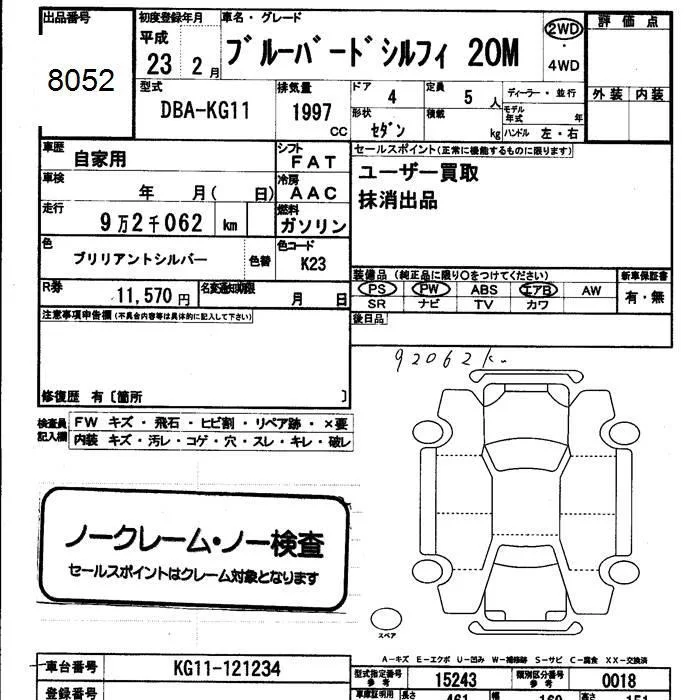 出品番号
8052
初度登録年月
平成
23 2 月
車名・グレード
ブルーバードシルフィ 20M
2WD
・
4WD
評価点
外装 内装
型式
DBA-KG11
排気量
1997
CC
ドア
4
定員
5 人
形状
セダン
積載
kg
ディーラー・並行
モデル年式 年
ハンドル 左・右
車歴
自家用
車検
年 月( 日)
走行
9万2千062 km
色
ブリリアントシルバー
色替
シフト
FAT
冷房
AAC
燃料
ガソリン
色コード
K23
R券
11,570 円
名変通知期限
月 日
セールスポイント(正常に機能するものに限ります)
ユーザー買取
抹消出品
装備品(純正品に限り○をつけてください)
PS PW ABS エアB AW
SR ナビ TV カワ
新車保証書
有・無
後日品
注意事項申告欄(不具合内容等は具体的に記入して下さい)
修復歴 有〔箇所 〕
検査員記入欄
FW キズ・飛石・ヒビ割・リペア跡・×要
内装 キズ・汚レ・コゲ・穴・スレ・キレ・破レ
92062K
ノークレーム・ノー検査
セールスポイントはクレーム対象となります
スペア
A-キズ E-エクボ U-凹み W-補修跡 S-サビ C-腐食 XX-交換済
車台番号
KG11-121234
登録番号
型式指定番号
参考
15243
類別区分番号
参考
0018
車庫証明用
長さ
461
幅
169
高さ
151